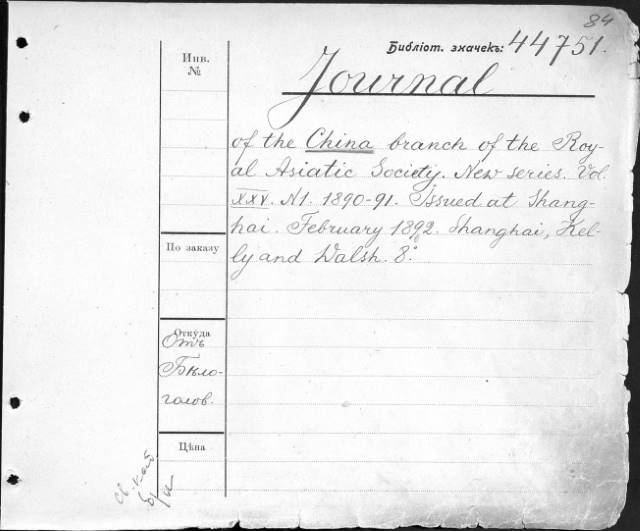 84
Библіот. значекъ: 44751.
Инв. №
Journal
of the China branch of the Roy-
al Asiatic Society. New series. Vol.
XXV. N1. 1890-91. Issued at Shang-
hai. February 1892. Shanghai, Kel-
ly and Walsh. 8º.
По заказу
Откуда
Отъ
Бѣло-
голов.
Цѣна